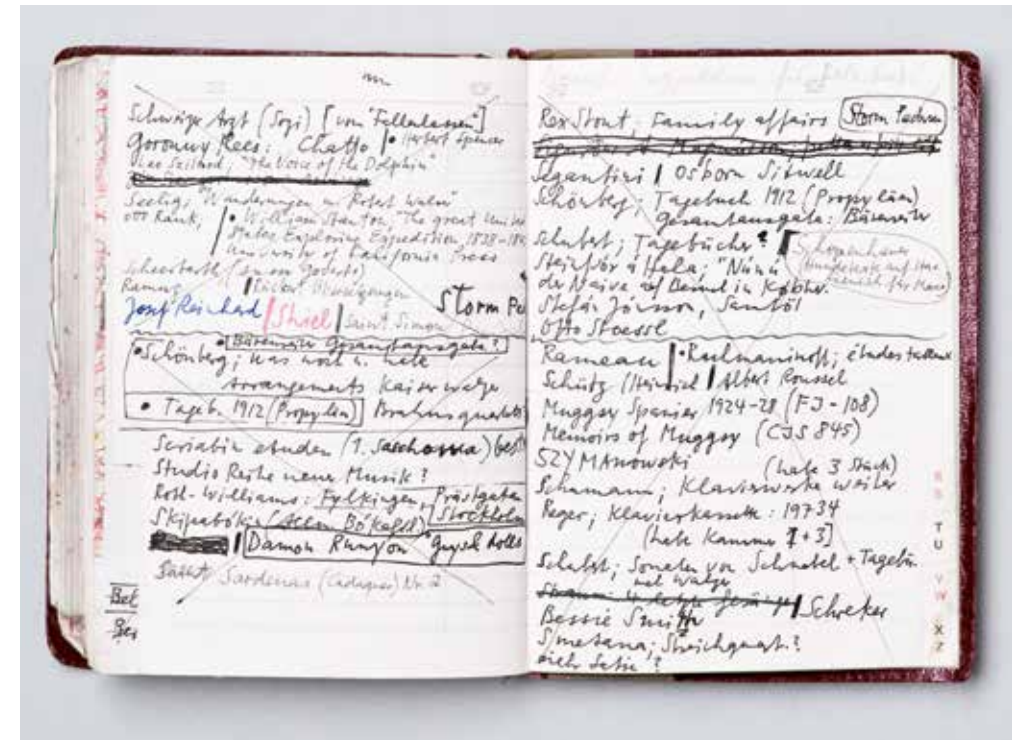 Schweizer Arzt (Sozi) [vom "Fallenlassen"]
Goronwy Rees: Chatto | • Herbert Spencer
Leo Szilard, "The Voice of the Dolphin"
Seelig, "Wanderungen m. Robert Walser"
Otto Rank, | • William Stanton, "The great United
States Exploring Expedition, 1838-184
University of California Press
Scheerbarth
Ramuz |
Storm Pe
Josef Reinhard | Shiel | Saint Simon
• Bärenreiter Gesamtausgabe?
• Schönberg; was noch u. hate
Arrangements Kaiserwalzer
• Tageb. 1912 (Propyläen) Brahmsquartett
Scriabin etuden (1. Saschowa) best
Studio Reihe neuer Musik?
Rolf-Williams: Fylkingen, Prästgatan
Stockholm
Skípabókin (Allan Bókafél)
| Damon Runyon guys & dolls
Ballet Sardanas (Cadaques) Nr. 2
Bee
Ber
Rex Stout, Family affairs Storm Pedersen
Segantini | Osborn Sitwell
Schönberg, Tagebuch 1912 (Propyläen)
Gesamtausgabe: Bärenreiter
Schubert; Tagebücher? Schopenhauer
Steinþór á Hala; "Nú nú"
der Naive auf Besuch in Kobbv.
Stefán Jónsson,
Otto Stoessl
Rameau | • Rachmaninoff; études tableaux
Schütz (Heinrich | Albert Roussel
Muggsy Spanier 1924-28 (FJ-108)
Memoirs of Muggsy (CJS 845)
SZYMAnowski (habe 3 Stück)
Schumann; Klavierwerke weiter
Reger; Klavierkassette: 19734
(habe Kammer I + 3]
Schubert; Sonaten von Schnabel + Tagebü.
und Walzer
Strauss 4 letzte Gesänge | Schreker
Bessie Smith
Smetana; Streichquart.?
mehr Satie?
T
U
V
W
X
Z